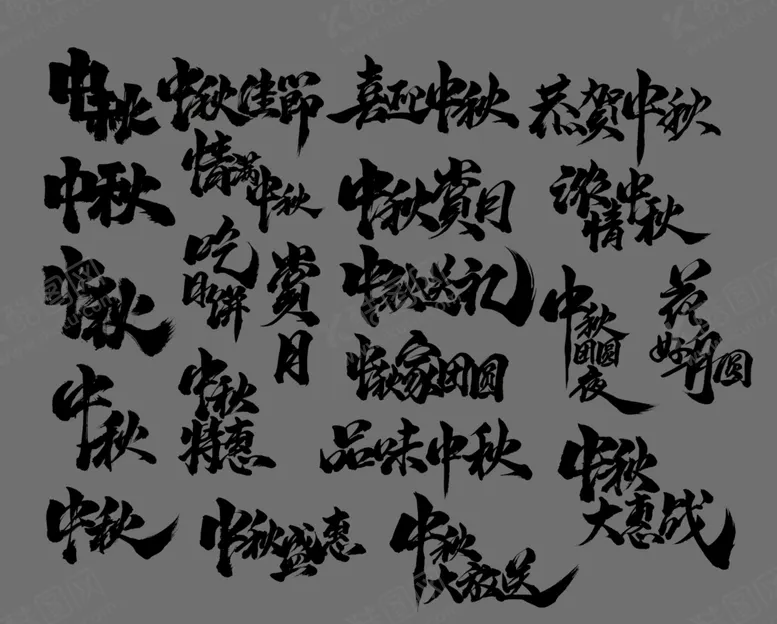 中秋
中秋佳節
喜迎中秋
恭贺中秋
中秋
情满
中秋
中秋賞月
浓情中秋
中秋
吃月饼
賞月
中秋送礼
中秋团圆夜
花好月圆
中秋
中秋
特惠
中秋家团圆
品味中秋
中秋
大惠战
中秋
中秋盛惠
中秋
大放送